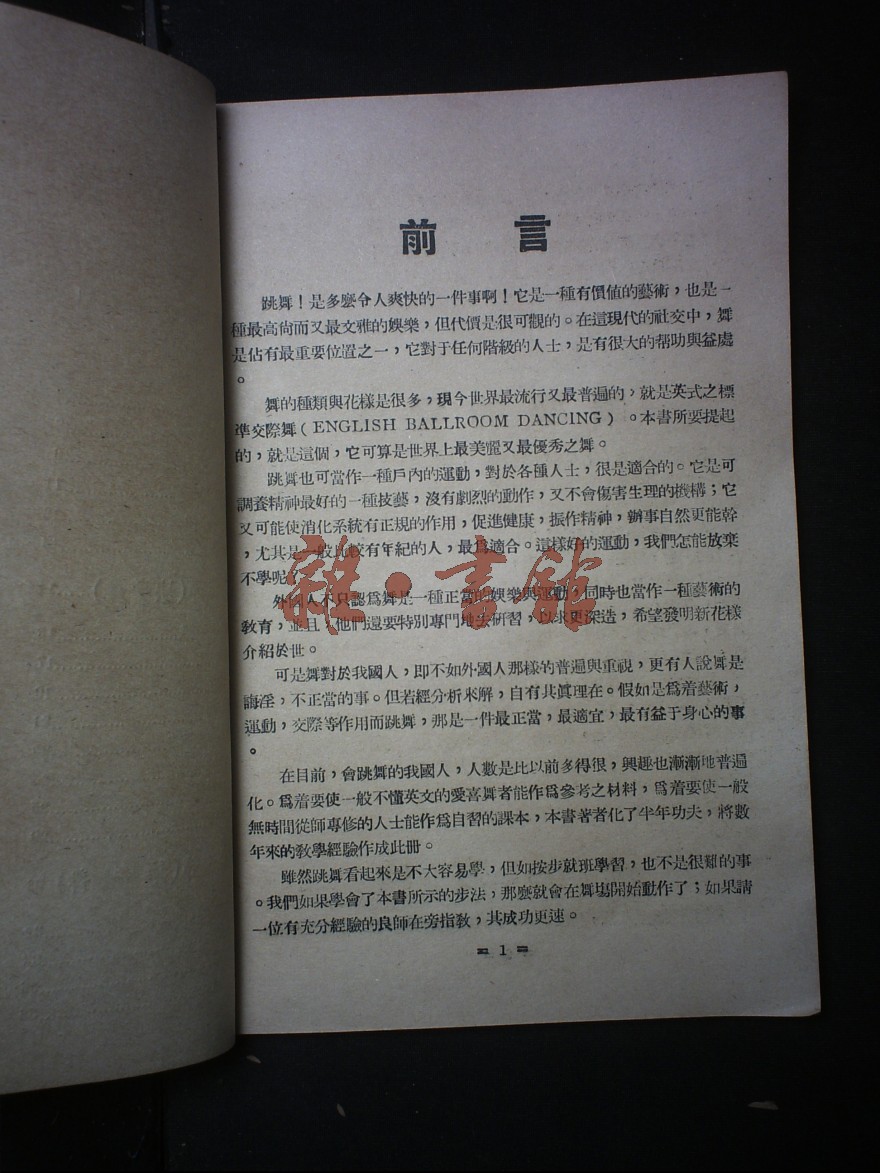 前 言
跳舞！是多麼令人爽快的一件事啊！它是一種有價値的藝術，也是一
種最高尙而又最文雅的娛樂，但代價是很可觀的。在這現代的社交中，舞
是佔有最重要位置之一，它對于任何階級的人士，是有很大的帮助與益處
。
舞的種類與花樣是很多，現今世界最流行又最普遍的，就是英式之標
準交際舞（ENGLISH BALLROOM DANCING）。本書所要提起
的，就是這個，它可算是世界上最美麗又最優秀之舞。
跳舞也可當作一種戶內的運動，對於各種人士，很是適合的。它是可
調養精神最好的一種技藝，沒有劇烈的動作，又不會傷害生理的機構；它
又可能使消化系統有正規的作用，促進健康，振作精神，辦事自然更能幹
，尤其是一般比較有年紀的人，最爲適合。這樣好的運動，我們怎能放棄
不學呢？
外國人不只認爲舞是一種正當的娛樂與運動，同時也當作一種藝術的
敎育，並且，他們還要特別專門地去研習，以求更深造，希望發明新花樣
介紹於世。
可是舞對於我國人，即不如外國人那樣的普遍與重視，更有人說舞是
誨淫，不正當的事。但若經分析來解，自有其眞理在。假如是爲着藝術，
運動，交際等作用而跳舞，那是一件最正當，最適宜，最有益于身心的事
。
在目前，會跳舞的我國人，人數是比以前多得很，興趣也漸漸地普遍
化。爲着要使一般不懂英文的愛喜舞者能作爲參考之材料，爲着要使一般
無時間從師專修的人士能作爲自習的課本，本書著者化了半年功夫，將數
年來的敎學經驗作成此冊。
雖然跳舞看起來是不大容易學，但如按步就班學習，也不是很難的事
。我們如果學會了本書所示的步法，那麼就會在舞場開始動作了；如果請
一位有充分經驗的良師在旁指敎，其成功更速。
= 1 =
雜·書館